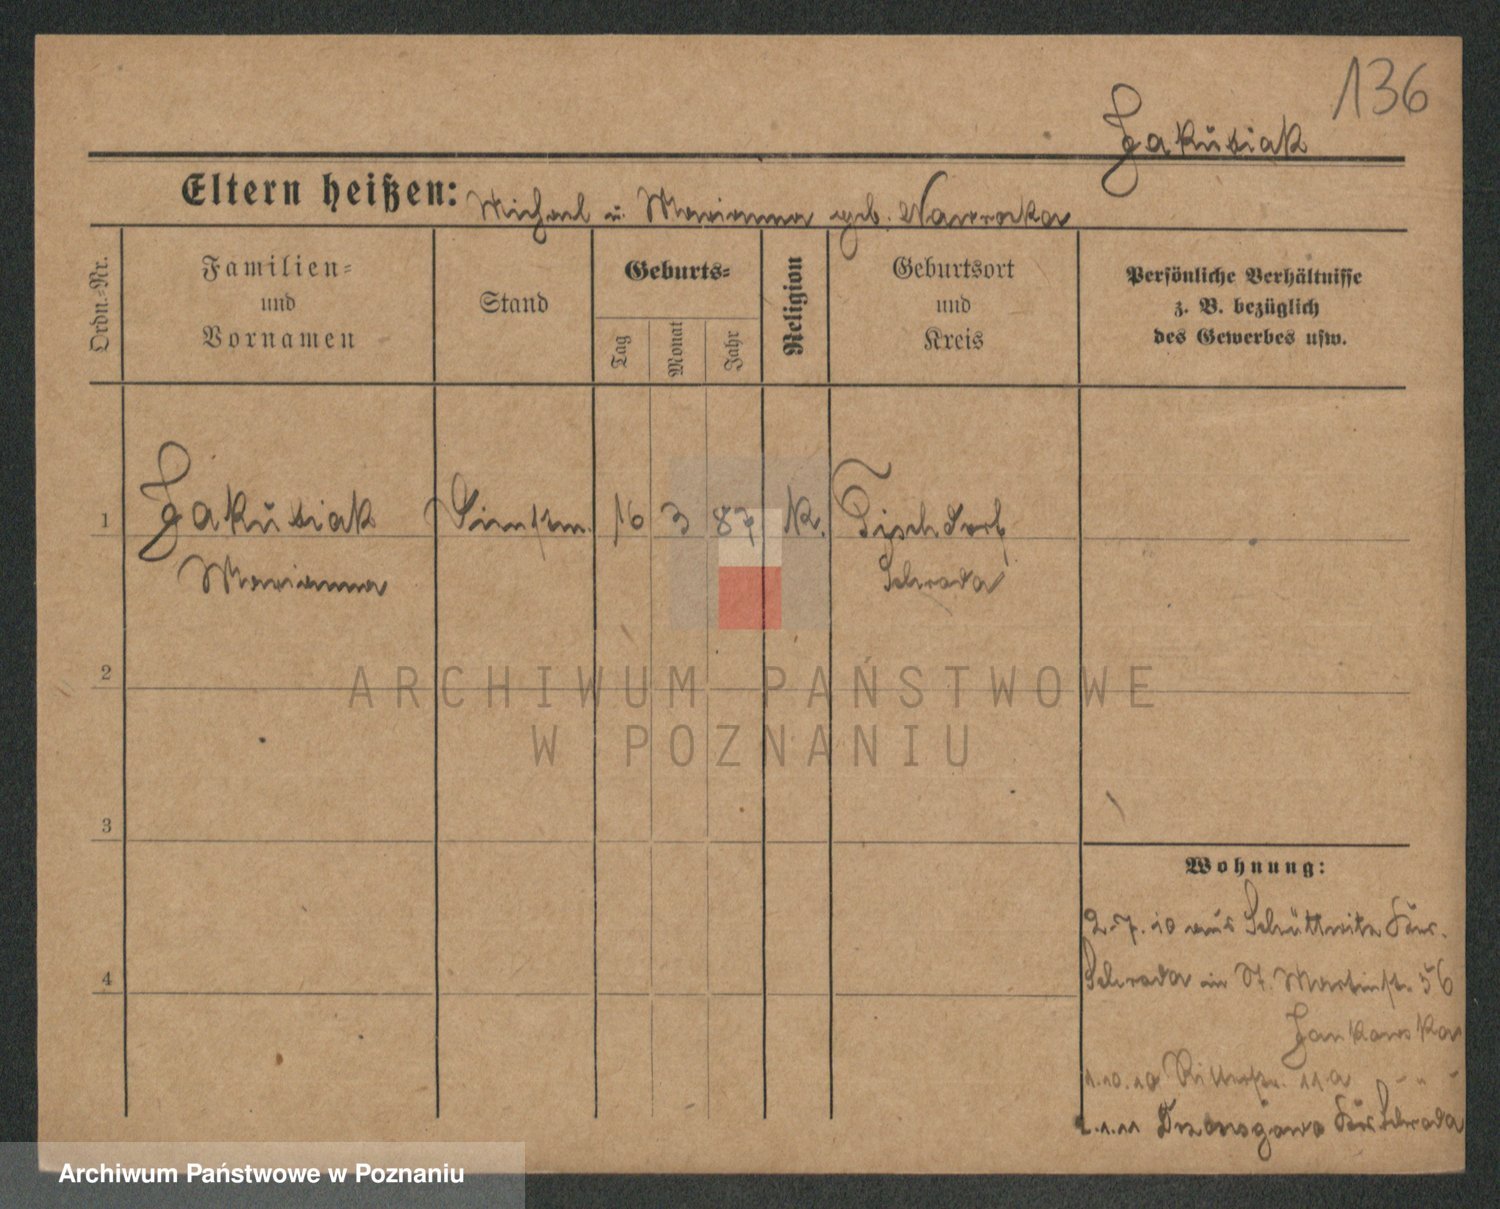 136
Jakusiak
Eltern heißen: Michael u. Marianna geb. Nawrocka
Ordn.-Nr.
Familien-
und
Vornamen
Stand
Geburts-
Tag
Monat
Jahr
Religion
Geburtsort
und
Kreis
Persönliche Verhältnisse
z. B. bezüglich
des Gewerbes usw.
1 Jakusiak 16 3 87 K. Tischdorf
Marianna Schroda
ARCHIWUM PAŃSTWOWE
W POZNANIU
2
3
4
Wohnung:
2.7.10 aus
Schroda in St. Martinstr. 56
Jankowska
1.10.10 Ritterstr. 11a - " -
2.1.11 Schroda
Archiwum Państwowe w Poznaniu